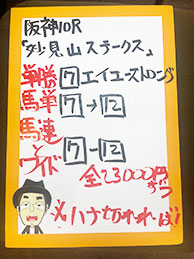 阪神10R
「妙見山ステークス」
単勝 7 エイユーストロング
馬単 7→12
馬連とワイド 7-12
全23000円ずつ
必ハナ切れれば!